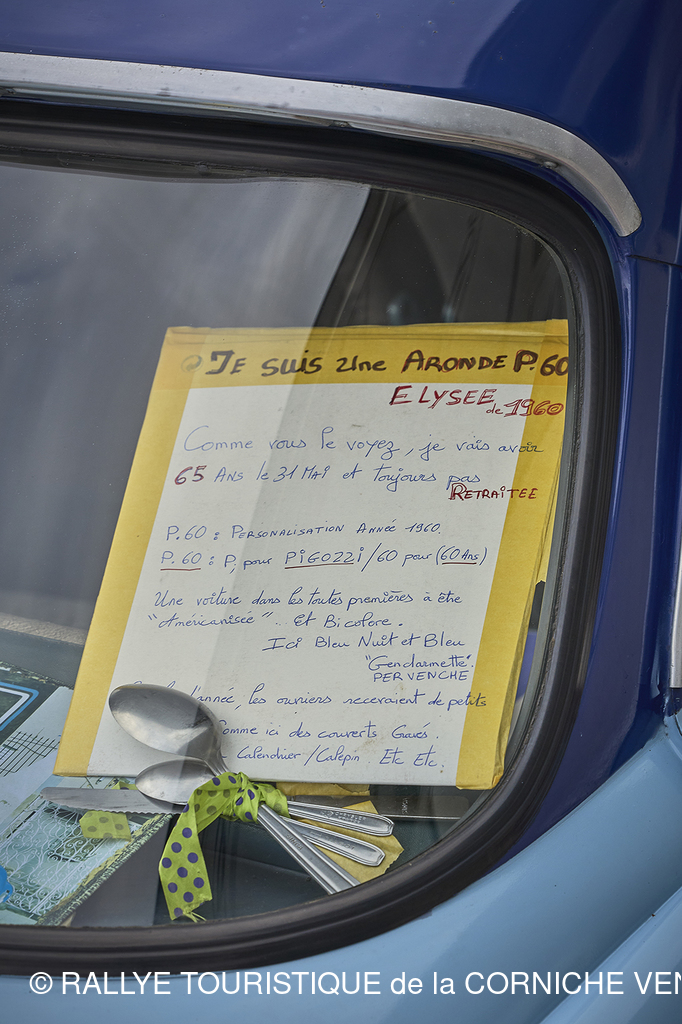 JE suis une ARONDE P.60
ELYSEE
de 1960
Comme vous le voyez, je vais avoir
65 ANS le 31 MAI et toujours pas
RETRAITEE
P.60 : PERSONALISATION ANNÉE 1960.
P.60 : P. pour PIGOZZI/60 pour (60 Ans)
Une voiture dans les toutes premières à être
"Américanisée".. Et Bicolore.
Ici Bleu Nuit et Bleu
"Gendarmette".
PERVENCHE
l'année, les ouvriers recevaient de petits
Comme ici des couverts Gravés.
Calendrier/Calepin Etc Etc.
© RALLYE TOURISTIQUE de la CORNICHE VEN